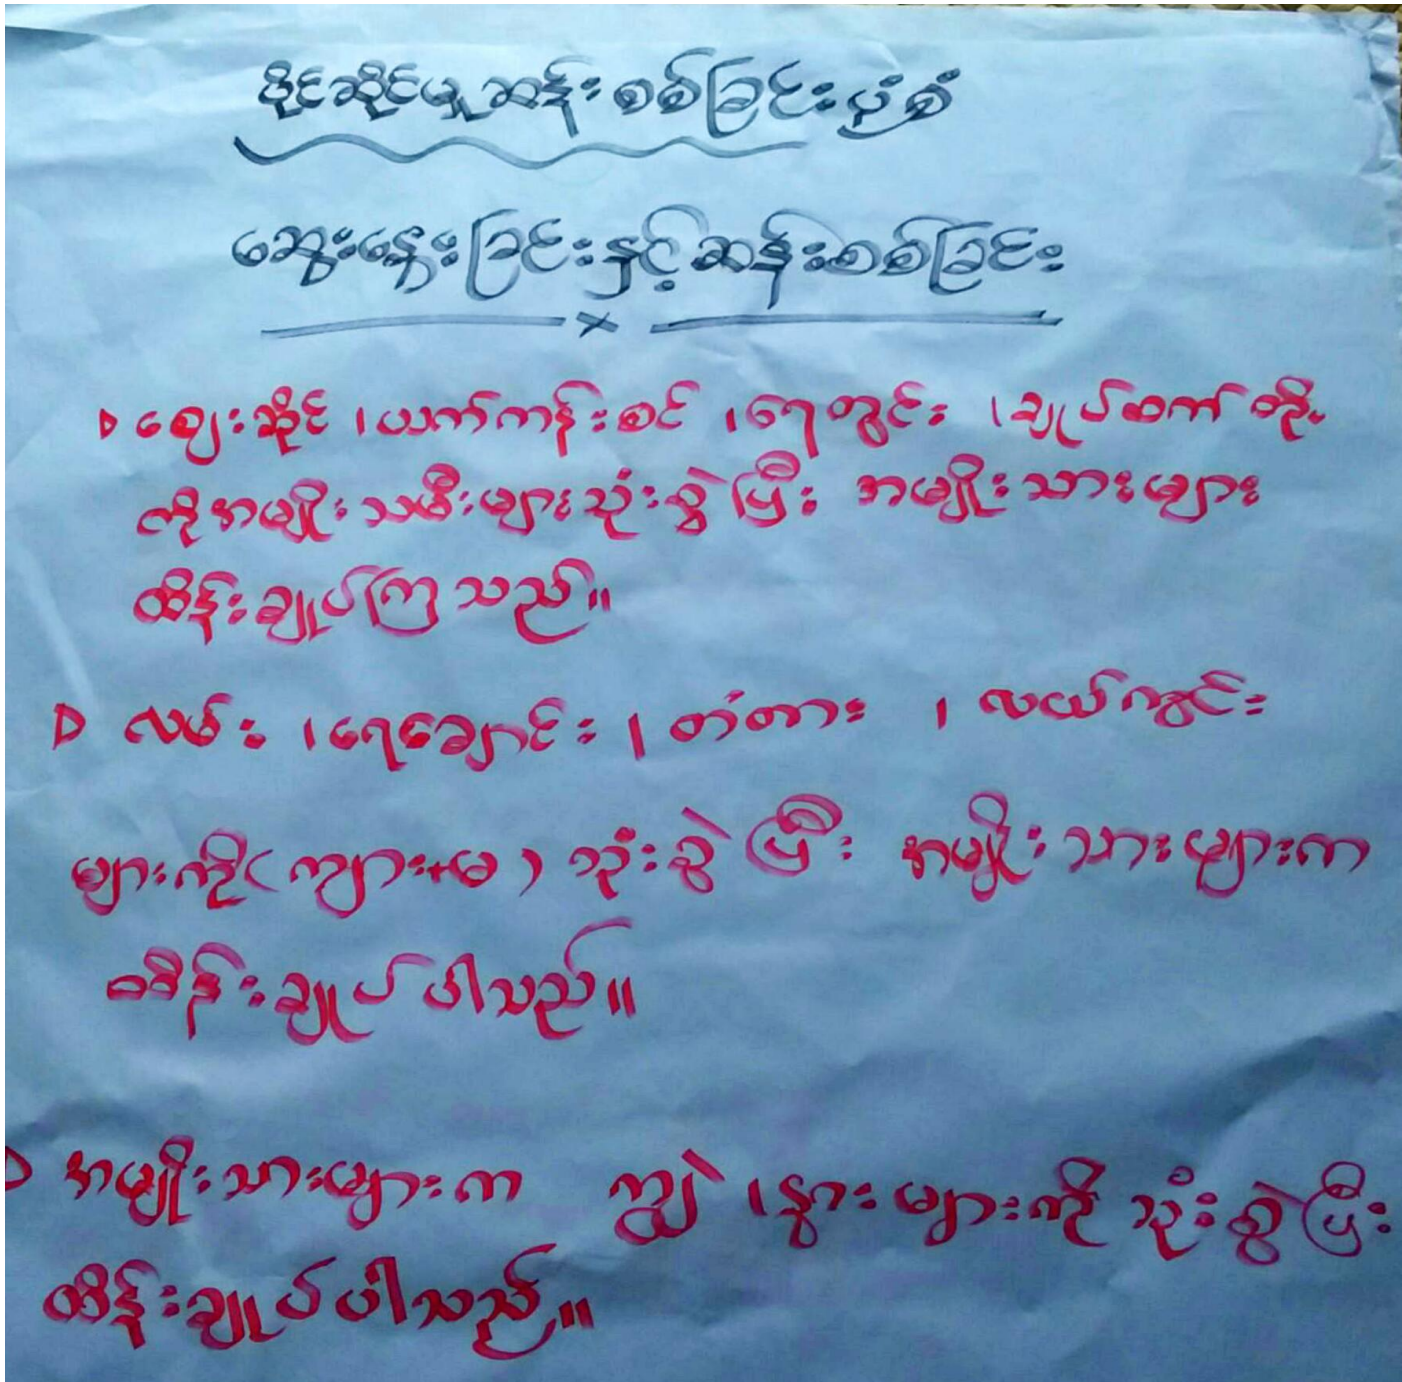 ပိုင်ဆိုင်မှုဆန်းစစ်ခြင်းပုံစံ
ဆွေးနွေးခြင်းနှင့်ဆန်းစစ်ခြင်း
ဈေးဆိုင် ၊ယက်ကန်းစင် ၊ရေတွင်း ၊ချုပ်ထက် တို့
ကိုအမျိုးသမီးများသုံးစွဲပြီး အမျိုးသားများ
ထိန်းချုပ်ကြသည်။
လမ်း ၊ရေချောင်း ၊ တံတား ၊ လယ်ကွင်း
များကို(ကျား+မ) သုံးစွဲပြီး အမျိုးသားများက
ထိန်းချုပ်ပါသည်။
အမျိုးသားများက ကျွဲ ၊နွားများကို သုံးစွဲပြီး
ထိန်းချုပ်ပါသည်။